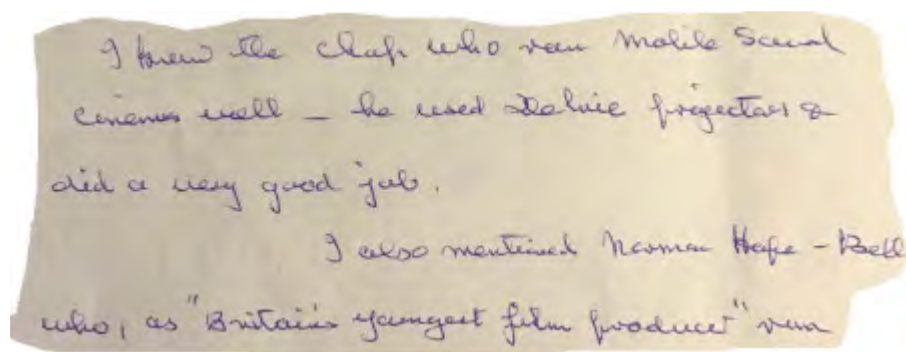 I knew the chap who ran Mobile Sound
cinemas well — he used Debrie projectors &
did a very good job.
I also mentioned Norman Hope-Bell
who, as "Britain's youngest film producer" run